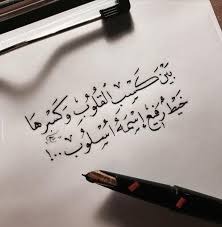 بَيْنَ كَسْبِ القُلُوبِ وَكَسْرِهَا
خَطٌ رَفِيعٌ اِسْمُهُ أُسْلُوب ...!